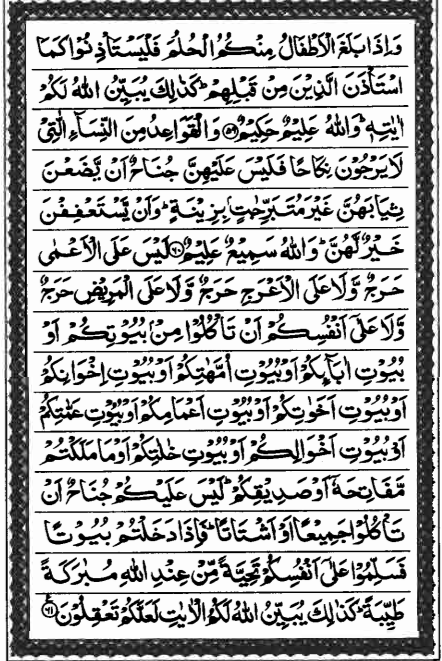 وَاِذَا بَلَغَ الْاَطْفَالُ مِنْكُمُ الْحُلُمَ فَلْيَسْتَاْذِنُوْا كَمَا
اسْتَاْذَنَ الَّذِيْنَ مِنْ قَبْلِهِمْ ؕ كَذٰلِكَ يُبَيِّنُ اللّٰهُ لَكُمْ
اٰيٰتِهٖ ؕ وَاللّٰهُ عَلِيْمٌ حَكِيْمٌ ﴿۵۹﴾ وَالْقَوَاعِدُ مِنَ النِّسَآءِ الّٰتِيْ
لَا يَرْجُوْنَ نِكَاحًا فَلَيْسَ عَلَيْهِنَّ جُنَاحٌ اَنْ يَّضَعْنَ
ثِيَابَهُنَّ غَيْرَ مُتَبَرِّجٰتٍۭ بِزِيْنَةٍ ؕ وَاَنْ يَّسْتَعْفِفْنَ
خَيْرٌ لَّهُنَّ ؕ وَاللّٰهُ سَمِيْعٌ عَلِيْمٌ ﴿۶۰﴾ لَيْسَ عَلَى الْاَعْمٰى
حَرَجٌ وَّلَا عَلَى الْاَعْرَجِ حَرَجٌ وَّلَا عَلَى الْمَرِيْضِ حَرَجٌ
وَّلَا عَلٰٓى اَنْفُسِكُمْ اَنْ تَاْكُلُوْا مِنْۢ بُيُوْتِكُمْ اَوْ
بُيُوْتِ اٰبَآئِكُمْ اَوْ بُيُوْتِ اُمَّهٰتِكُمْ اَوْ بُيُوْتِ اِخْوَانِكُمْ
اَوْ بُيُوْتِ اَخَوٰتِكُمْ اَوْ بُيُوْتِ اَعْمَامِكُمْ اَوْ بُيُوْتِ عَمّٰتِكُمْ
اَوْ بُيُوْتِ اَخْوَالِكُمْ اَوْ بُيُوْتِ خٰلٰتِكُمْ اَوْ مَا مَلَكْتُمْ
مَّفَاتِحَهٗٓ اَوْ صَدِيْقِكُمْ ؕ لَيْسَ عَلَيْكُمْ جُنَاحٌ اَنْ
تَاْكُلُوْا جَمِيْعًا اَوْ اَشْتَاتًا ؕ فَاِذَا دَخَلْتُمْ بُيُوْتًا
فَسَلِّمُوْا عَلٰٓى اَنْفُسِكُمْ تَحِيَّةً مِّنْ عِنْدِ اللّٰهِ مُبٰرَكَةً
طَيِّبَةً ؕ كَذٰلِكَ يُبَيِّنُ اللّٰهُ لَكُمُ الْاٰيٰتِ لَعَلَّكُمْ تَعْقِلُوْنَ ﴿۶۱﴾